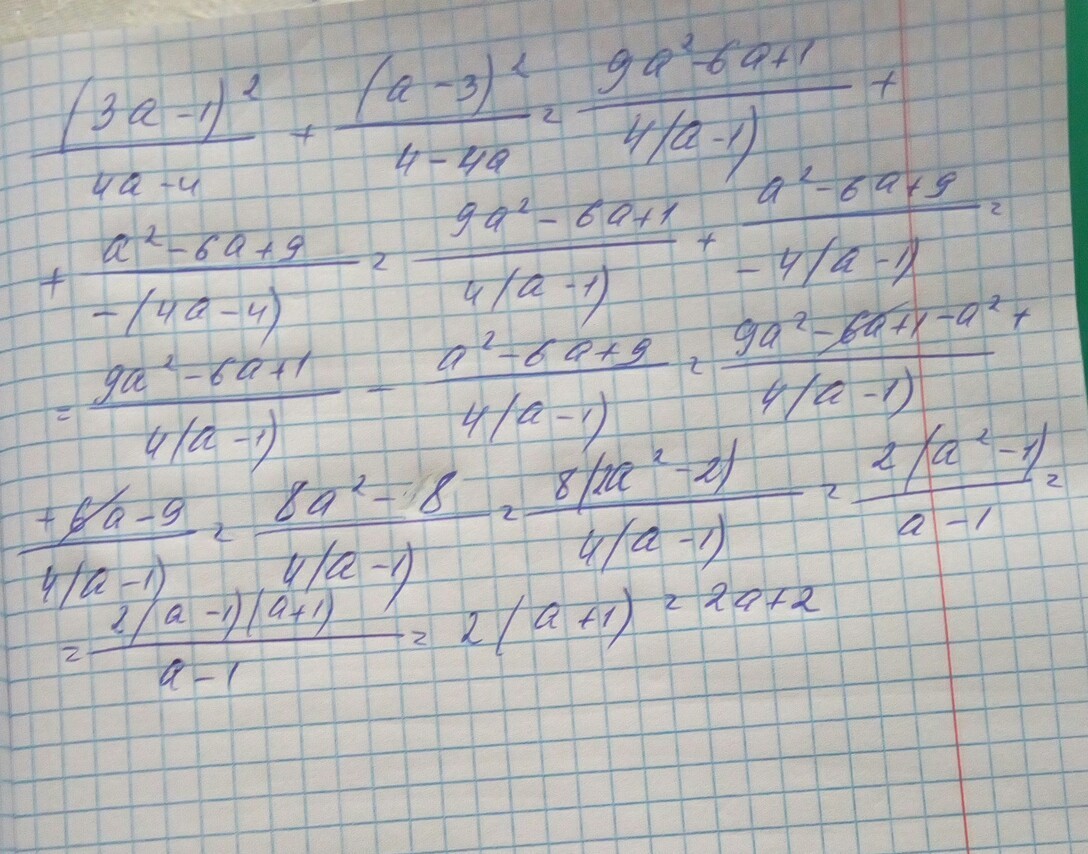 (3a-1)²/(4a-4) + (a-3)²/(4-4a) = (9a²-6a+1)/(4(a-1)) +
+ (a²-6a+9)/(-(4a-4)) = (9a²-6a+1)/(4(a-1)) + (a²-6a+9)/(-4(a-1)) =
= (9a²-6a+1)/(4(a-1)) - (a²-6a+9)/(4(a-1)) = (9a²-6a+1-a²+)/(4(a-1))
(+6a-9)/(4(a-1)) = (8a²-8)/(4(a-1)) = 8(2a²-2)/(4(a-1)) = 2(a²-1)/(a-1) =
= 2(a-1)(a+1)/(a-1) = 2(a+1) = 2a+2